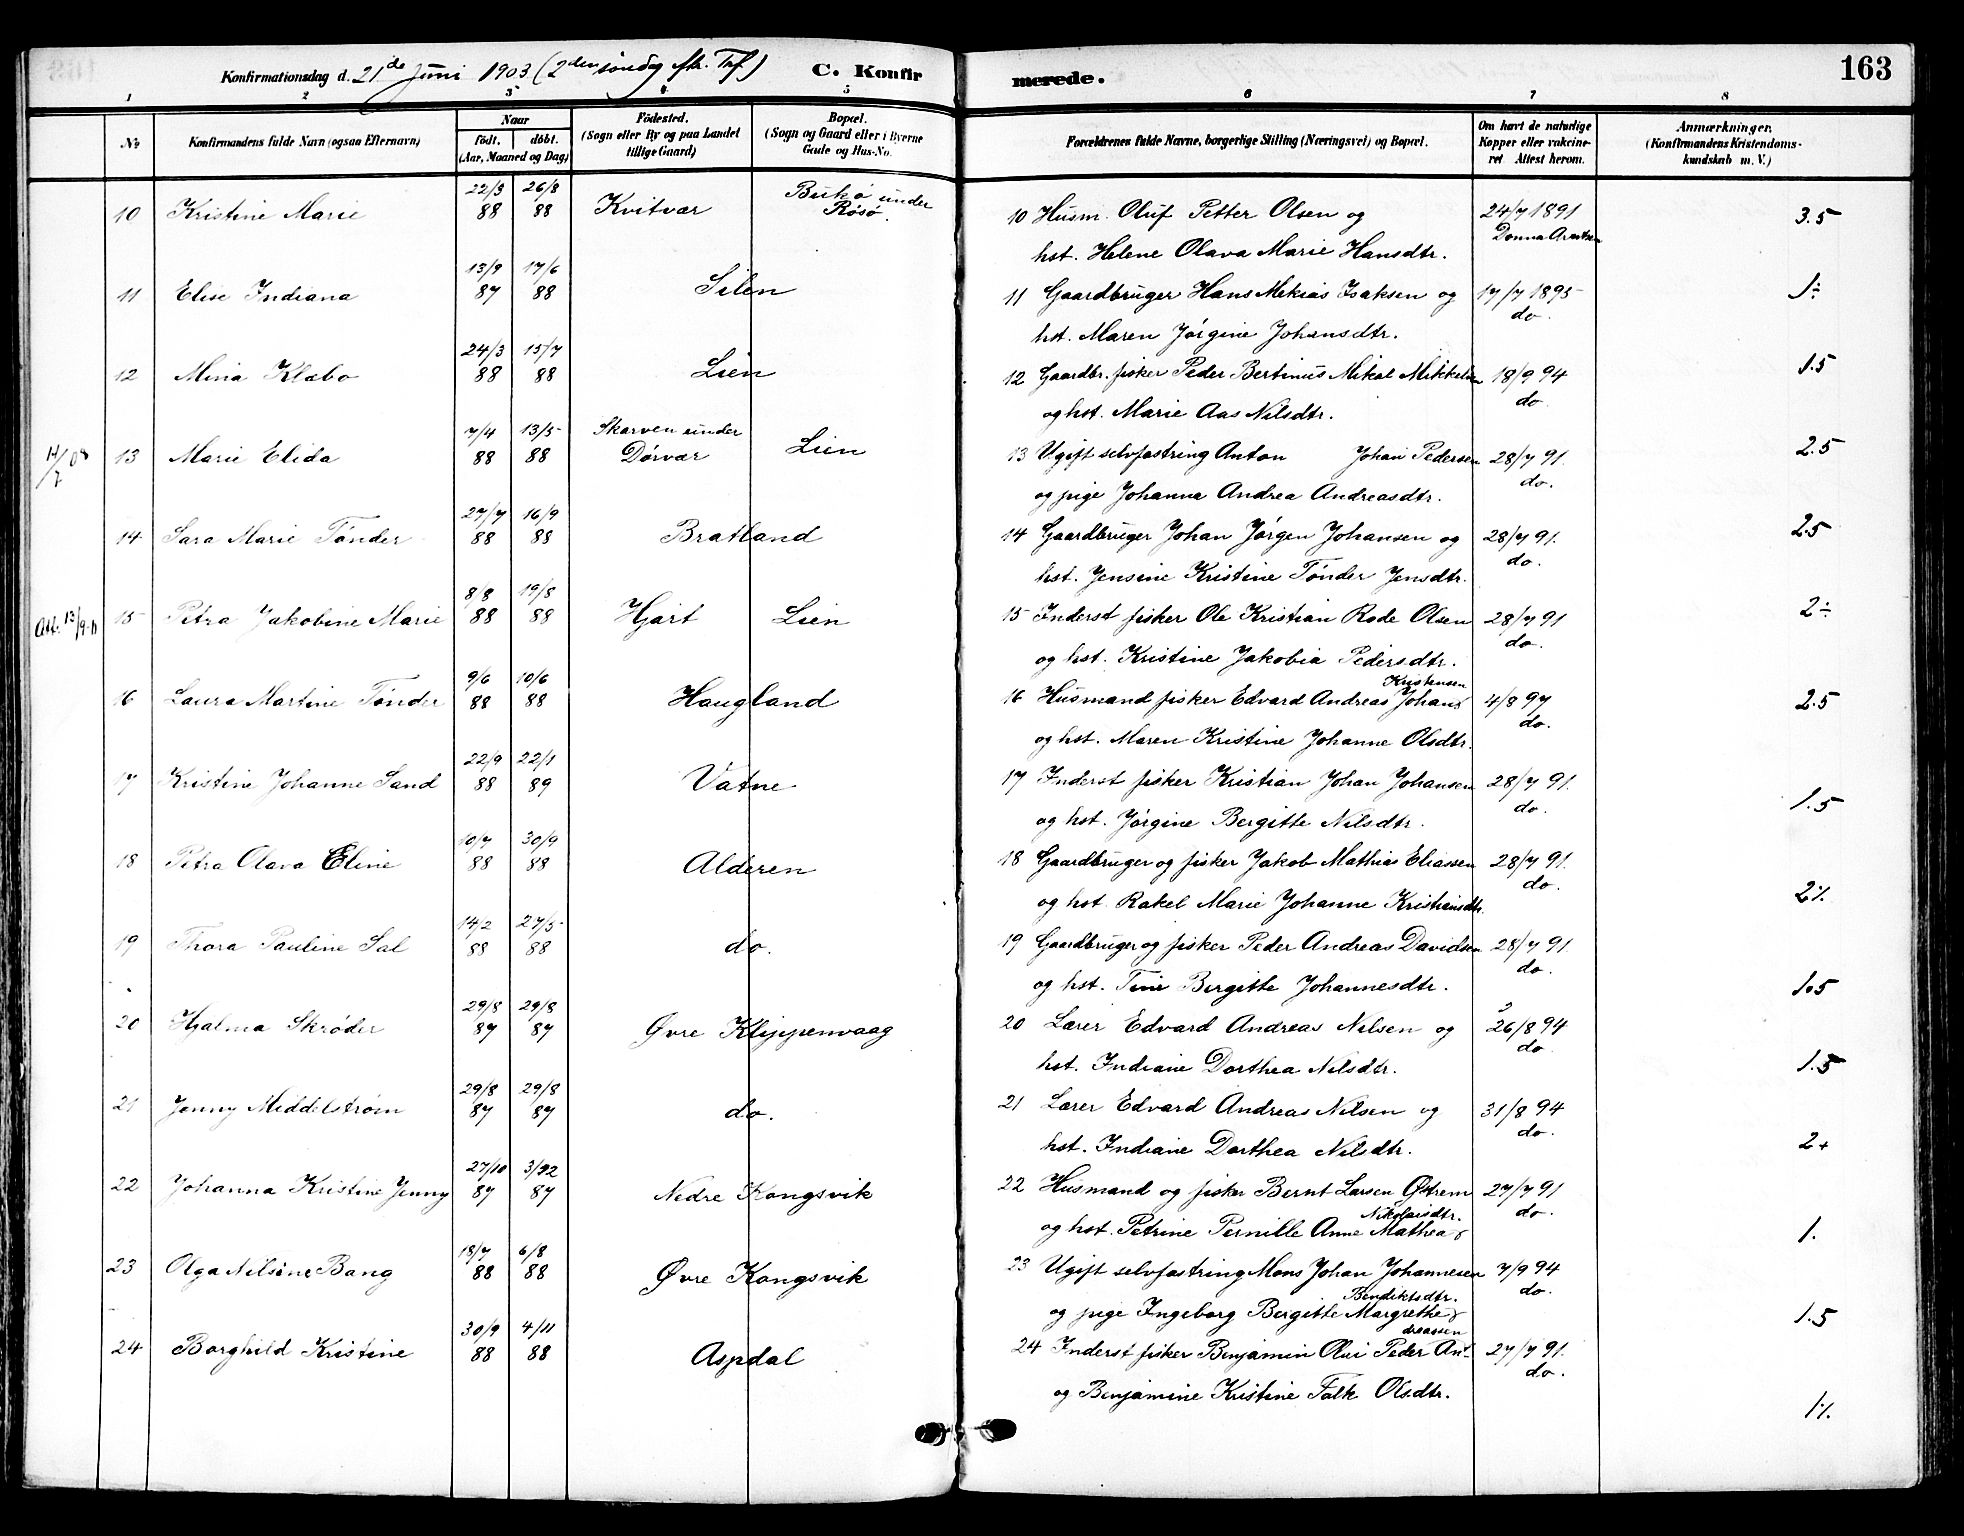 Konfirmationsdag d. 21de Juni 1903 (2den søndag eftr. Tref.) C. Konfirmerede. 163
1 2 3 4 5 6 7 8
No
Konfirmandens fulde Navn (ogsaa Efternavn)
Naar
født. døbt.
(Aar, Maaned og Dag)
Fødested.
(Sogn eller By og paa Landet
tillige Gaard)
Bopæl.
(Sogn og Gaard eller i Byerne
Gade og Hus-No.
Forældrenes fulde Navne, borgerlige Stilling (Næringsvei) og Bopæl.
Om havt de naturlige
Kopper eller vakcine-
ret Attest herom.
Anmærkninger.
(Konfirmandens Kristendoms-
kundskab m. V.)
10 Kristine Marie 22/3 88 26/8 88 Kvitvær Bukø under Røsø. 10 Husm. Oluf Petter Olsen og 24/7 1891 3.5
hst. Helene Olava Marie Hansdtr. Donna Arentsen
11 Elise Indiana 13/9 87 17/6 88 Silen 11 Gaardbruger Hans Mekias Isaksen og 17/7 1895 1÷
hst. Maren Jørgine Johansdtr. do.
12 Mina Klæbo 24/3 88 15/7 88 Lien 12 Gaardbr. fisker Peder Bertinus Mikal Mikkelsen 18/9 94 1.5
og hst. Marie Aas Nilsdtr. do
13 Marie Elida 7/4 88 13/5 88 Skarven under Dørvær Lien 13 Ugift selvfostring Anton Johan Pedersen 28/7 91. 2.5
og pige Johanna Andrea Andreasdtr. do.
14 Sara Marie Tønder 27/7 88 16/9 88 Bratland 14 Gaardbruger Johan Jørgen Johansen og 28/7 91. 2.5
hst. Jensine Kristine Tønder Jensdtr. do.
Att. 13/9-11 15 Petra Jakobine Marie 8/8 88 19/8 88 Hjart Lien 15 Inderst fisker Ole Kristian Rode Olsen 28/7 91 2÷
og hst. Kristine Jakobia Pedersdtr. do.
16 Laura Martine Tønder 9/6 88 10/6 88 Haugland 16 Husmand fisker Edvard Andreas Johan Kristensen 4/8 97 2.5
og hst. Maren Kristine Johanne Olsdtr. do.
17 Kristine Johanne Sand 22/9 88 22/1 89 Vatne 17 Inderst fisker Kristian Johan Johansen 28/7 91. 1.5
og hst. Jørgine Bergitte Nilsdtr. do.
18 Petra Olava Eline 10/7 88 30/9 88 Alderen 18 Gaardbruger og fisker Jakob Mathias Eliassen 28/7 91. 2%
og hst. Rakel Marie Johanne Kristiansdtr. do.
19 Thora Pauline Sal 14/2 88 27/5 88 do. 19 Gaardbruger og fisker Peder Andreas Davidsen 28/7 91 1.5
og hst. Tine Bergitte Johannesdtr. do.
20 Hjalma Skrøder 29/8 87 29/8 87 Øvre Klippenvaag 20 Lærer Edvard Andreas Nilsen og 26/8 94 1.5
hst. Indiane Dorthea Nilsdtr. do
21 Jenny Middelstrøm 29/8 87 29/8 87 do. 21 Lærer Edvard Andreas Nilsen og 31/8 94 2+
hst. Indiane Dorthea Nilsdtr. do.
22 Johanna Kristine Jenny 27/10 87 87 Nedre Kongsvik 22 Husmand og fisker Bernt Larsen Østrem 27/7 91 1.
og hst. Petrine Pernille Anne Mathea Nikolaisdtr. do.
23 Olga Nilsine Bang 18/7 88 6/8 88 Øvre Kongsvik 23 Ugift selvfostring Mons Johan Johannesen 7/9 94 1.5
og pige Ingeborg Bergitte Margrethe Bendiktsdtr. do.
24 Borghild Kristine 30/9 88 4/11 88 Aspdal 24 Inderst fisker Benjamin Olai Peder Andreassen 27/7 91. 1%
og Benjamine Kristine Falk Olsdtr. do.